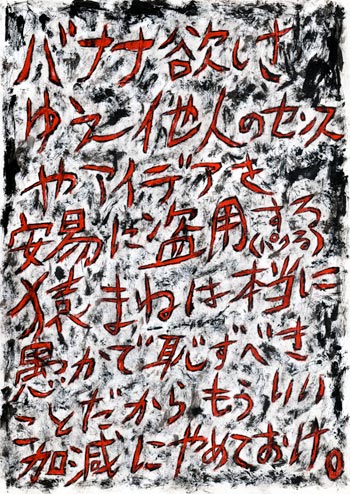 バナナ欲しさ
ゆえ他人のセンス
やアイデアを
安易に盗用する
猿まねは本当に
愚かで恥ずべき
ことだからもういい
加減にやめておけ。